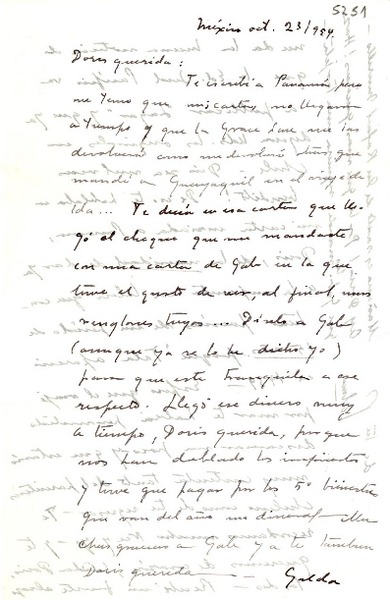 5251
México oct. 23/954.
Doris querida:
Te escribí a Panamá, pero
me temo que mi carta no llegara
a tiempo y que la Grace Line me la
devolverá como me devolvió otras que
mandé a Guayaquil en el viaje de
Ida... Te decía en esa carta que lle-
gó el cheque que me mandaste,
con una carta de Gabi en la que
tuve el gusto de ver, al final, unos
renglones tuyos... Díselo a Gabi
(aunque ya se lo he dicho yo)
para que esté tranquila a ese
respecto. Llegó ese dinero muy
a tiempo, Doris querida, porque
nos han doblado los impuestos
y tuve que pagar por los 5 bimestres
que van del año un dineral. Mu
chas gracias a Gabi y a ti también
Doris querida